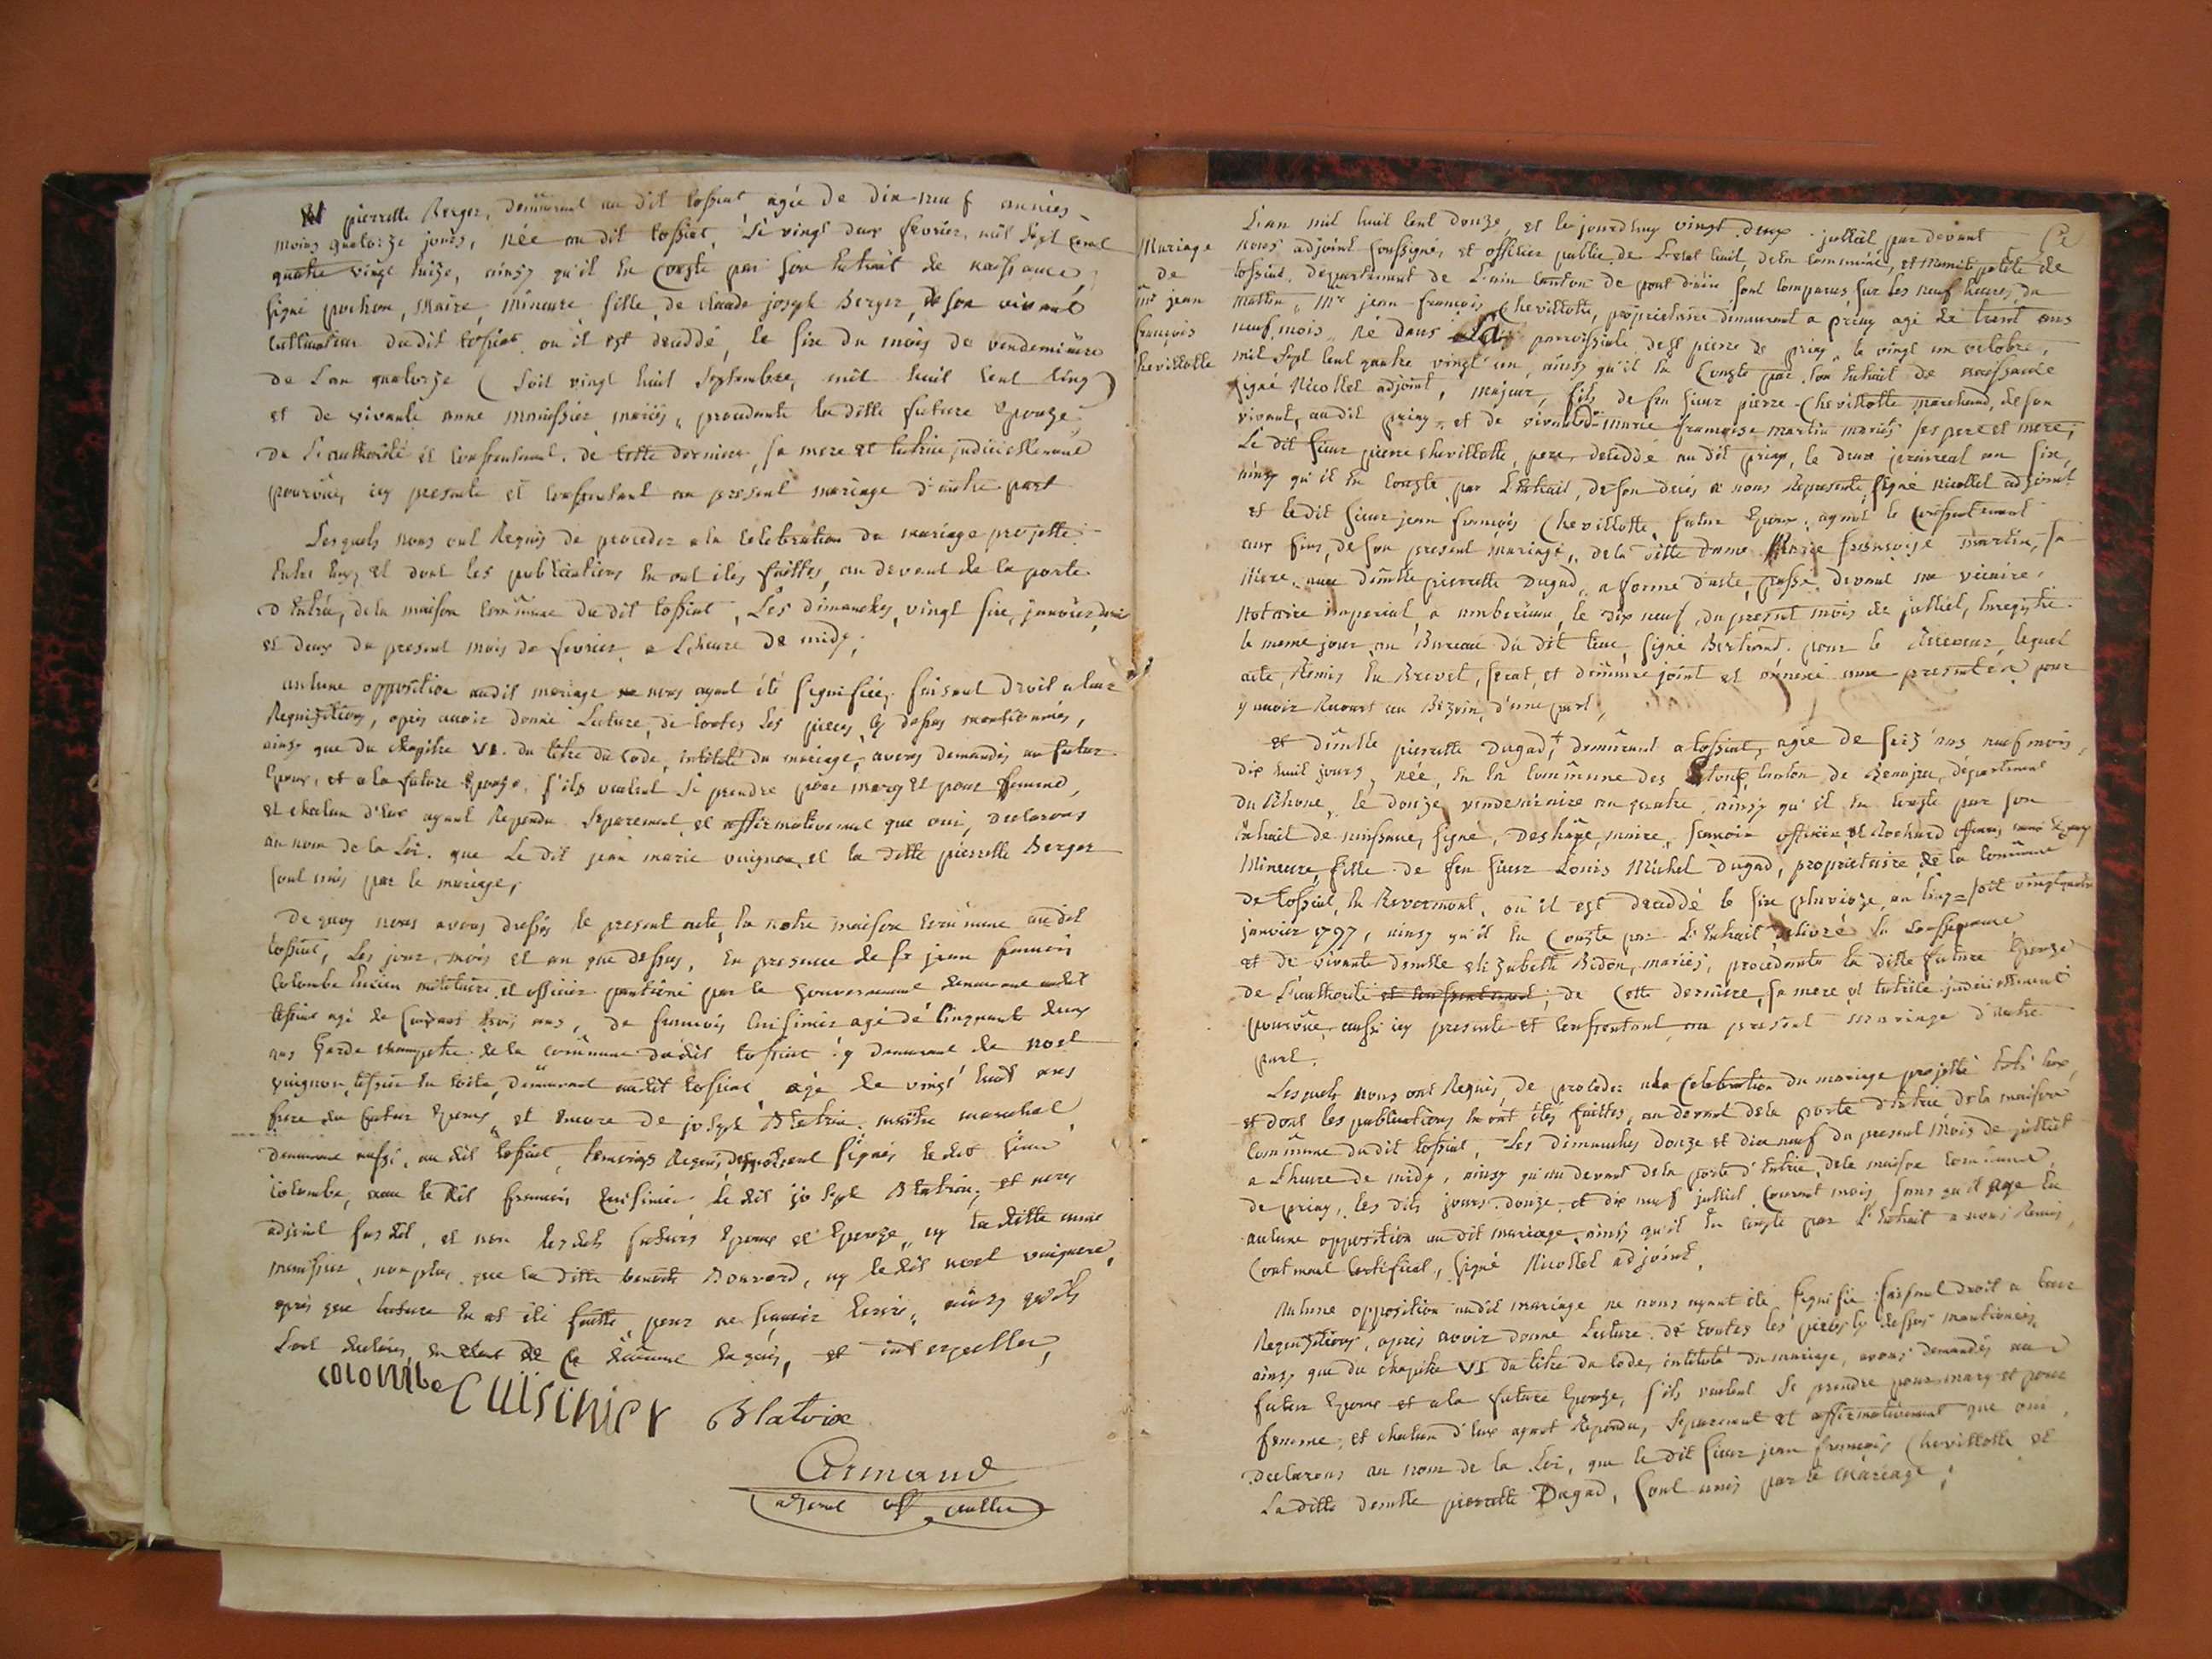 Et pierrette Berger, demeurant au dit tossiat agée de dix neuf années
moins quatorze jours, née au dit tossiat, le vingt deux fevrier, mil sept cent
quatre vingt treize, ainsy qu'il en Conste par son Extrait de naissance
signé pochon, maire, mineure fille de claude joseph Berger, de son vivant
cultivateur dudit tossiat ou il est decedde, le six du mois de vendemiaire
de L'an quatorze (soit vingt huit septembre, mil huit cent cinq)
et de vivante anne monissier mariés, procedante la ditte future Epouze
de L'authorité et consentement de cette derniere, sa mere et tutrice judiciellement
pourvüe, icy presente et consentant au present mariage d'autre part
Lesquels nous ont Requis de proceder a la Celebration du mariage projetté
Entre Eux, et dont les publications En ont étés faittes, au devant de la porte
d'Entrée, de la maison commune du dit tossiat, Les dimanches, vingt six, janvier
et deux du present mois de fevrier a L'heure de midy,
aucune opposition audit mariage ne nous ayant été signifiée, faisant droit a leur
Requisitions, après avoir donné Lecture, de toutes les pieces cy dessus mentionnées,
ainsy que du chapitre VI. du titre du Code, intitulé du mariage, avons demandés au futur
Epoux, et a la future Epouze, s'ils veulent se prendre pour mary et pour femme,
et chacun d'eux ayant Repondu separement et affirmativement que oui, declarons
au nom de la Loi. que Le dit jean marie vuignon et la ditte pierrette Berger
sont unis par le mariage,
de quoy nous avons dressés le present acte, En notre maison commune audit
tossiat, Les jour, mois et an que dessus, En presence de Sr jean francois
Colombe ancien militaire et officier pentioné par le Gouvernement demeurant audit
tossiat agé de soixante trois ans, de francois Cuisinier agé de Cinquante deux
ans Garde champetre de la commune dudit tossiat y demeurant de noel
vuignon, tissier En toile, demeurant audit tossiat agé de vingt huit ans
frere du futur Epoux, et encore de joseph Blatrix maitre marechal
demeurant aussi, au dit tossiat, temoings Requis, signés ledit sieur
Colombe, avec le dit francois Cuisinier, le dit joseph Blatrix, et nous
adjoint susdit, et non lesdits futurs Epoux et Epouze, ny la ditte anne
monissier, non plus que la ditte benoite Bouvard, ny ledit noel vuignon,
après que lecture En at été faitte, pour ne scavoir Ecrire, ainsy qu'ils
L'ont declarés, Enquis, et interpellés,
colombe Cuisinier Blatrix
Armand
adjoint off
Mariage
de
Mr jean
françois
chevillotte
L'an mil huit cent douze, et le jourdhuy vingt deux juilliet par devant
nous adjoint soussigné, et officier public de L'etat Civil, de la commune, et Municipalité de
tossiat, Departement de L'ain Canton de pont d'ain, sont comparus, sur les neuf heures, du
matin, Mr jean-françois Chevillotte, proprietaire demeurant a priay agé de trent ans
neuf mois, né dans paroissiale de St pierre de priay, le vingt un octobre,
mil sept cent quatre vingt un, ainsy qu'il En Conste par son Extrait de naissance
signé Nicollet adjoint, majeur, fils de feu sieur pierre Chevillotte marchand, de son
vivant, au dit priay, et de vivante marie françoise martin mariés ses pere et mere,
Le dit sieur pierre chevillotte, pere, deceddé au dit priay, le deux prairial an six,
ainsy qu'il En Conste, par L'Extrait, de son decès a nous Representé, signé nicollet adjoint
et ledit sieur jean françois Chevillotte, futur Epoux, ayant le Consentement
aux fins, de son present mariage, de la ditte dame Marie françoise martin, sa
Mere, avec dmlle pierrette Dugad, a forme d'acte, passé devant me vicaire,
Notaire imperial, a amberieux, le dix neuf, du present mois de juilliet, Enregistré
le meme jour, au Bureau du dit lieu, signé Bertrand pour le Receveur, lequel
acte, Remis En Brevet, serat, et demeure joint et annexé aux presentes pour
y avoir Recourt au Bezoin, d'une part,
et dmlle pierrette Dugad, demeurant a tossiat, agée de seiz'ans neuf mois,
dix huit jours, née, En la Commune des, canton de Beaujeu, département
du Rhone, le douze vendemiaire an quatre, ainsy qu'il En Conste par son
Extrait de naissance, signé, maire,
Mineure, fille de feu sieur Louis Michel Dugad, proprietaire de la commune
de tossiat, En Revermont, où il est deceddé le six pluvioze, an Cinq = soit vingt quatre
janvier 1797, ainsy qu'il En Conste par L'Extrait delivré
et de vivante demlle elizabette Bidon, mariés, procedante la ditte future Epouze
de L'authorité et consentement, de Cette derniere, sa mere et tutrice judiciellement
pourvüe, aussi icy presente et Consentant, au present mariage d'autre
part.
Lesquels nous ont Requis, de proceder a la Celebration du mariage projetté Entr'Eux,
et dont les publications En ont étés faittes, au devant de la porte d'Entrée de la maison
Commune du dit tossiat, Les dimanches douze et dix neuf du present mois de juilliet
a L'heure de midy, ainsy qu'au devant de la porte d'Entrée, de la maison commune,
de priay, les dits jours douze, et dix neuf juilliet Courant mois, sans qu'il aye Eu
aucune opposition au dit mariage, ainsy qu'il En Conste par L'Extrait a nous Remis,
Contenant Certificat, signé Nicollet adjoint.
Aucune opposition audit mariage ne nous ayant été signifié faisant droit a leur
Requisitions, après avoir donné Lecture, de toutes les pieces cy dessus mentionnées,
ainsy que du chapitre VI du titre du Code, intitulé du mariage, avons demandés au
futur Epoux et a la future Epouze, s'ils veulent se prendre pour mary et pour
femme, et chacun d'eux ayant Repondu, separement et affirmativement que oui,
declarons au nom de la Loi, que le dit sieur jean françois Chevillotte et
La ditte demlle pierrette Dugad, sont unis par le Mariage;